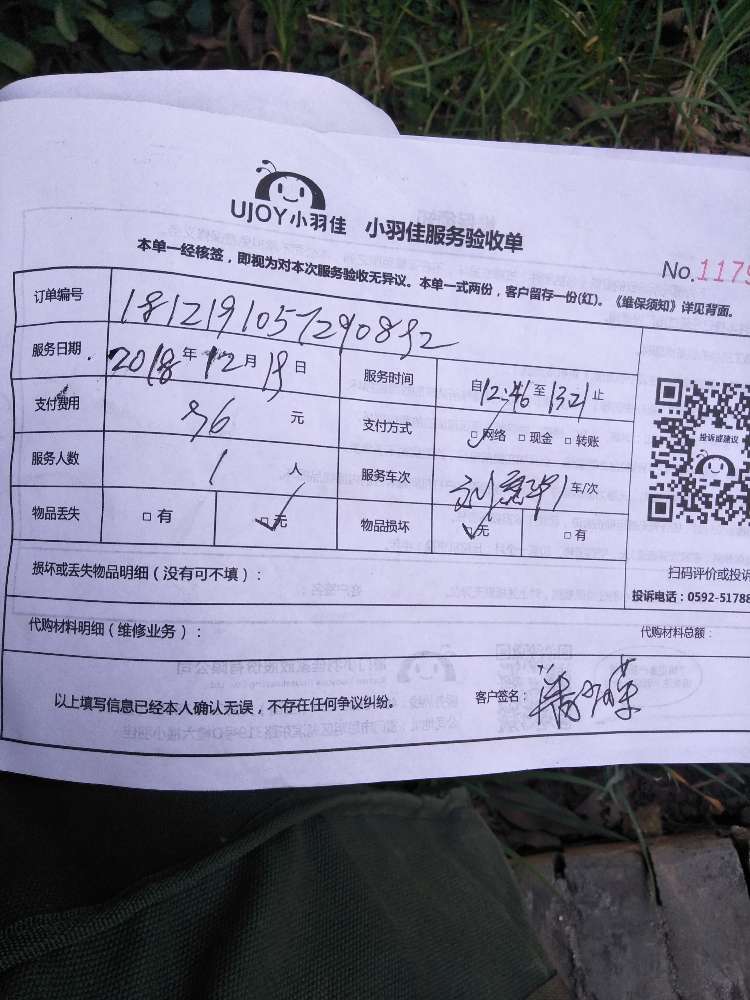 UJOY小羽佳 小羽佳服务验收单
本单一经核签，即视为对本次服务验收无异议。本单一式两份，客户留存一份(红)。《维保须知》详见背面。
No.1179
订单编号 1812191057290892
服务日期 2018年12月19日 服务时间 自12:46至1321止
支付费用 36元 支付方式 □网络 □现金 □转账
服务人数 1人 服务车次 1车/次
物品丢失 □有 □无 物品损坏 □无 □有
投诉或建议
扫码评价或投诉
投诉电话：0592-51788
损坏或丢失物品明细（没有可不填）：
代购材料明细（维修业务）： 代购材料总额：
以上填写信息已经本人确认无误，不存在任何争议纠纷。 客户签名：